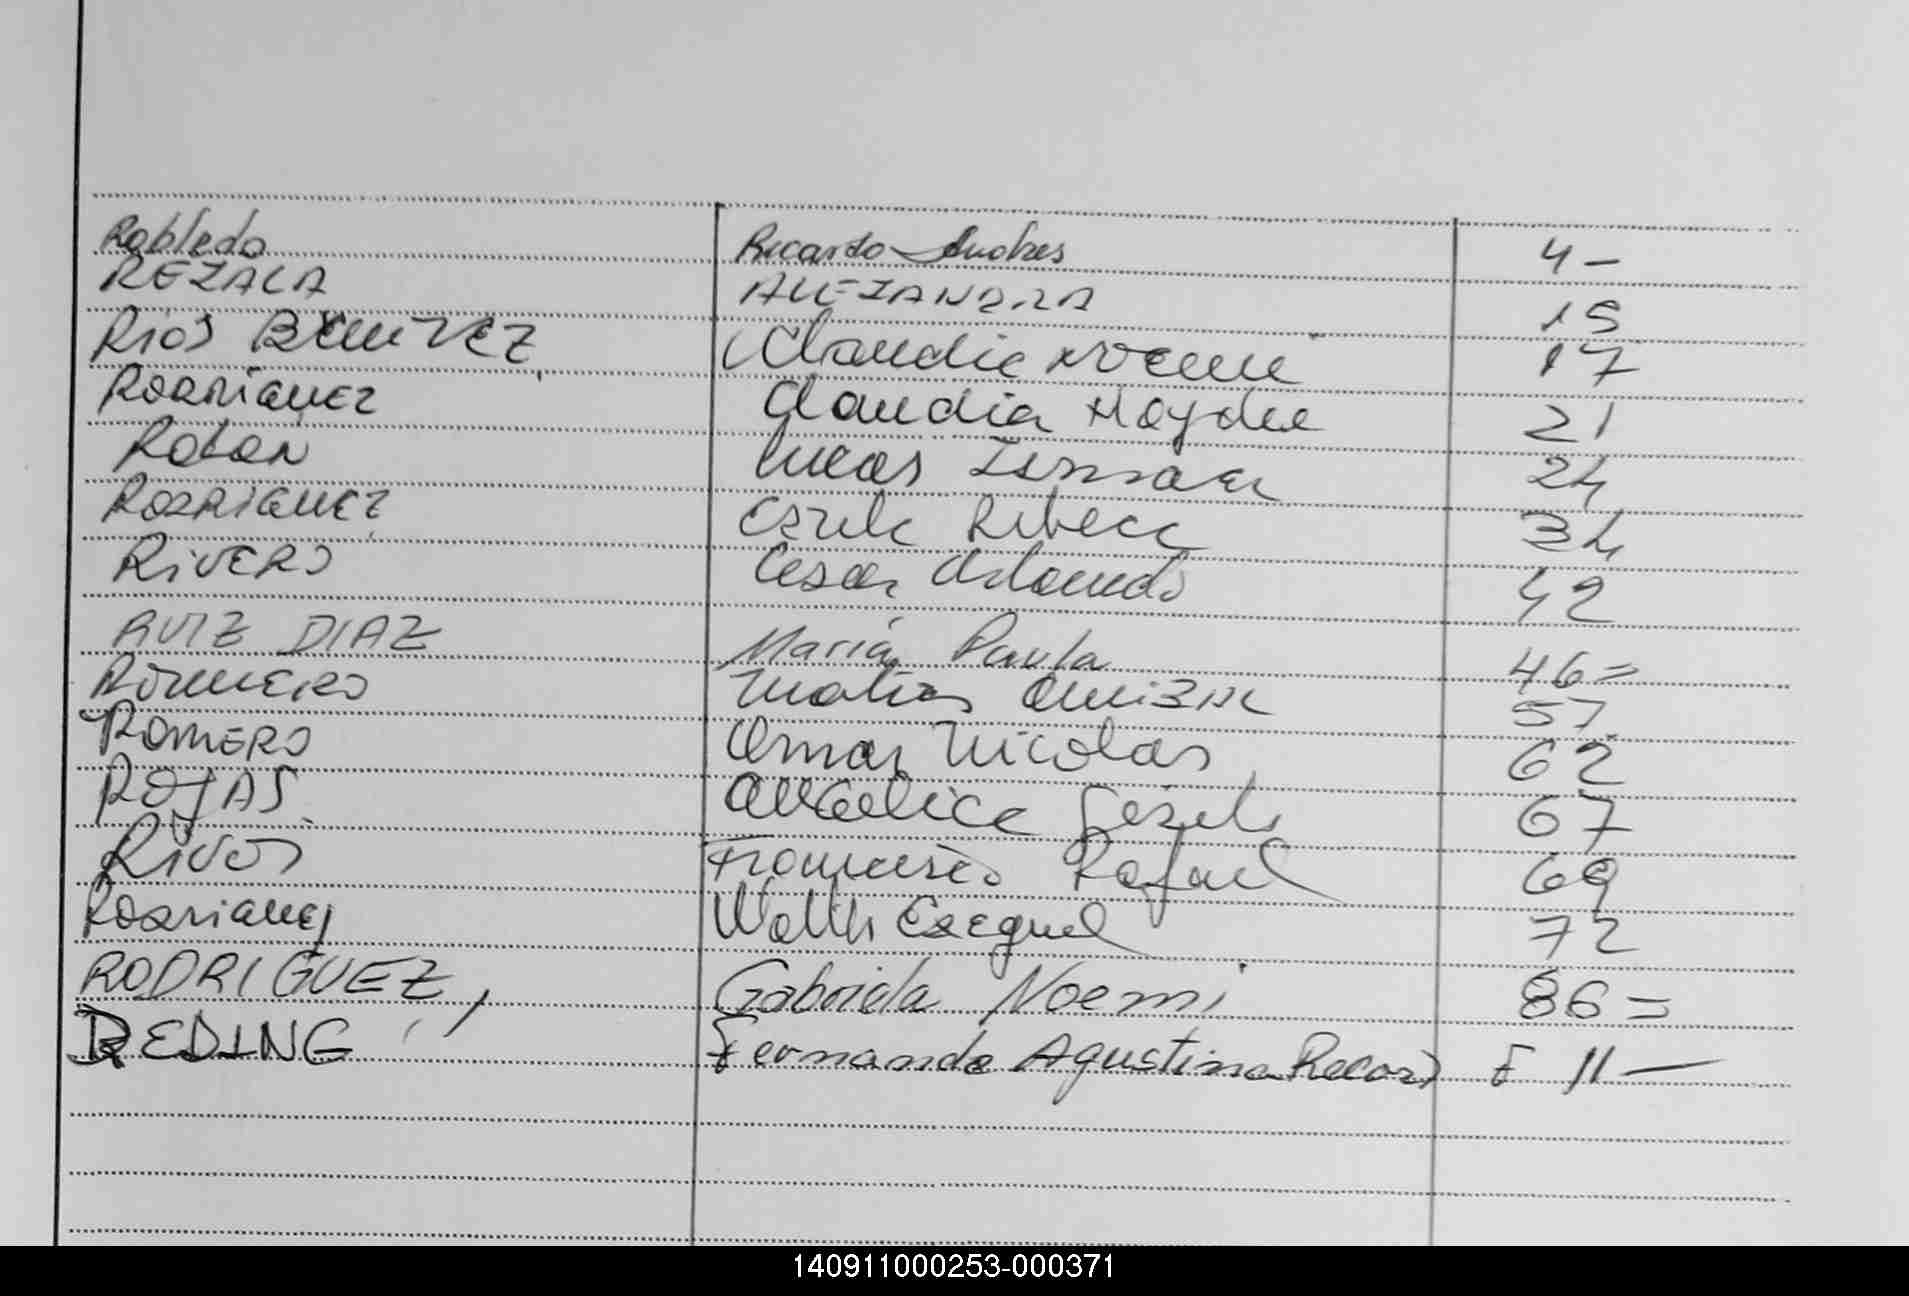 Robledo Ricardo Andres 4-
REZALA ALEJANDRA 15
Rios BENITEZ Claudia Noemi 17
RODRIGUEZ Claudia Haydee 21
Rolon Lucas Ismael 24
RODRIGUEZ Rebeca 34
RIVERO Cesar Orlando 42
RUIZ DIAZ Maria Paula 46=
ROMERO Matias 57
ROMERO Omar Nicolas 62
ROJAS Angelica Gisela 67
Rivas Francisco Rafael 69
Rodriguez Walter Ezequiel 72
RODRIGUEZ, Gabriela Noemi 86=
REDING Fernanda Agustina F 11-
140911000253-000371